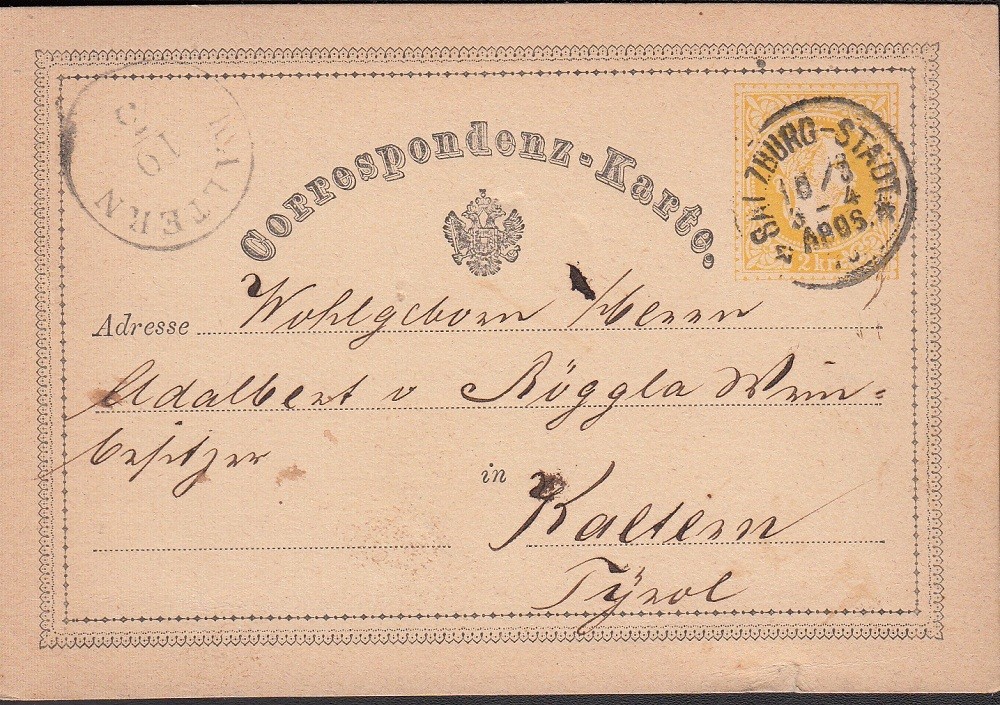 KALTERN
10/3
Correspondenz-Karte.
SALZBURG-STADT
2 kr
Adresse Wohlgeborn Herrn
Adalbert v Röggla Wein=
besitzer
in Kaltern
Tÿrol